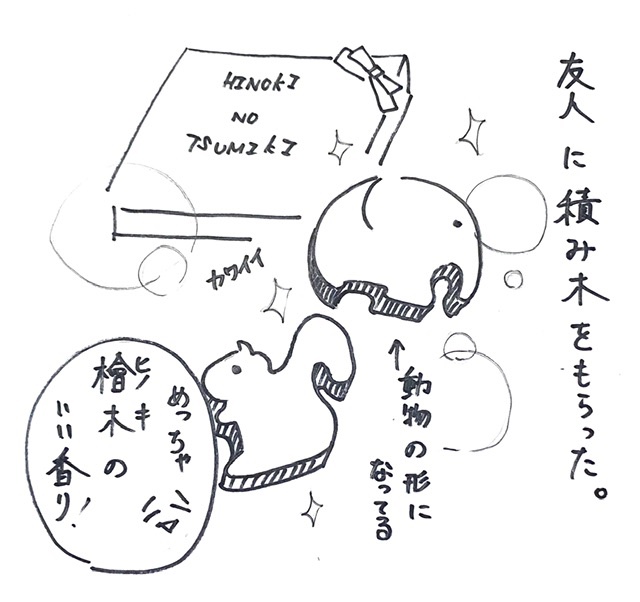 友人に積み木をもらった。
HINOKI
NO
TSUMIKI
カワイイ
↑動物の形に
なってる
めっちゃ
ヒノキ
檜木の
いい香り!